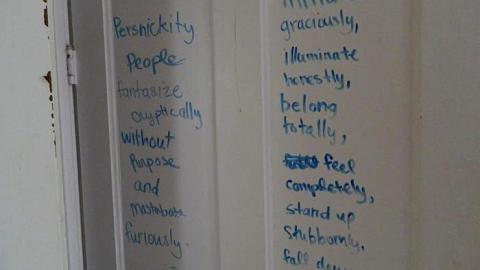 Persnickity
People
fantasize
cryptically
without
Purpose
and
mastabate
furiously.
graciously,
illuminate
honestly,
belong
totally,
feel
completely,
stand up
stubbornly,
fall down